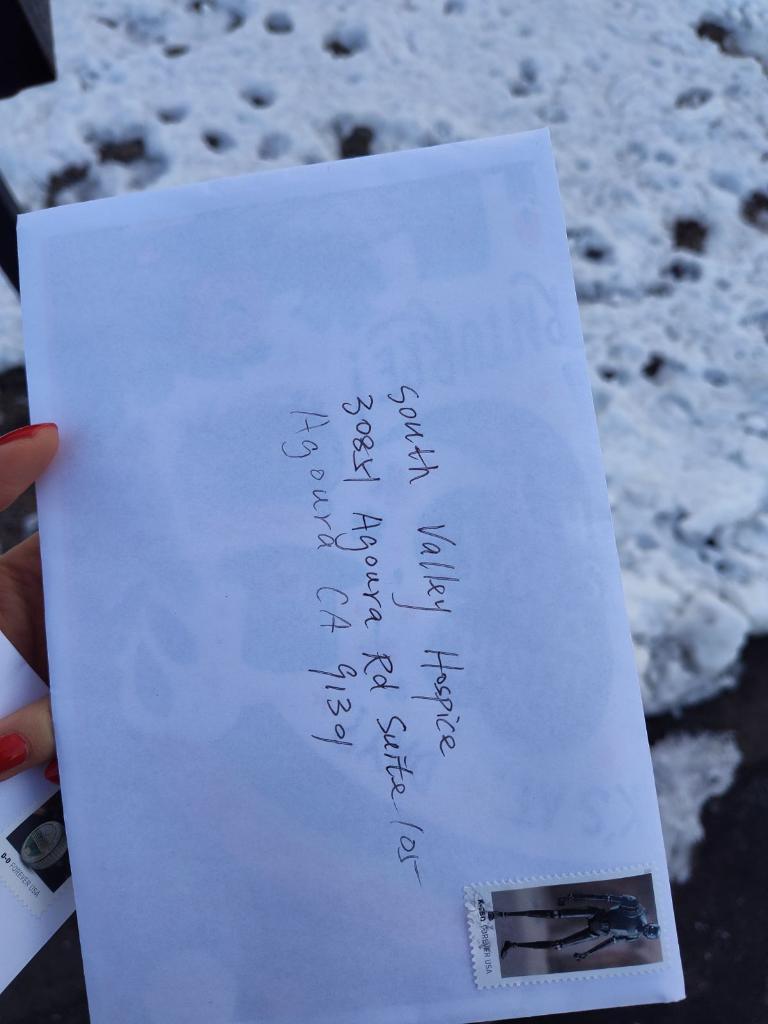 South Valley Hospice
30851 Agoura Rd Suite 105
Agoura CA 91301
K-2SO FOREVER USA
FOREVER USA